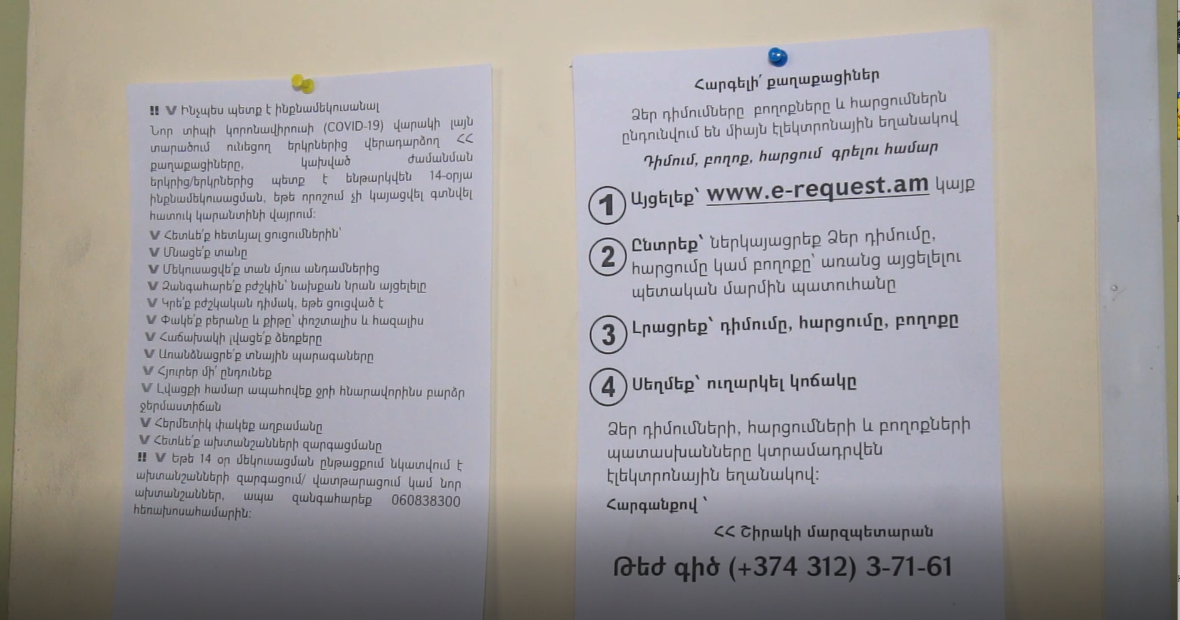 !! V Ինչպես պետք է ինքնամեկուսանալ
Նոր տիպի կորոնավիրուսի (COVID-19) վարակի լայն
տարածում ունեցող երկրներից վերադարձող ՀՀ
քաղաքացիները, կախված ժամանման
երկրից/երկրներից պետք է ենթարկվեն 14-օրյա
ինքնամեկուսացման, եթե որոշում չի կայացվել գտնվել
հատուկ կարանտինի վայրում:
V Հետևե՛ք հետևյալ ցուցումներին՝
V Մնացե՛ք տանը
V Մեկուսացվե՛ք տան մյուս անդամներից
V Զանգահարե՛ք բժշկին՝ նախքան նրան այցելելը
V Կրե՛ք բժշկական դիմակ, եթե ցուցված է
V Փակե՛ք բերանը և քիթը՝ փռշտալիս և հազալիս
V Հաճախակի լվացե՛ք ձեռքերը
V Առանձնացրե՛ք տնային պարագաները
V Հյուրեր մի՛ ընդունեք
V Լվացքի համար ապահովեք ջրի հնարավորինս բարձր
ջերմաստիճան
V Հերմետիկ փակեք աղբամանը
V Հետևե՛ք ախտանշանների զարգացմանը
!! V Եթե 14 օր մեկուսացման ընթացքում նկատվում է
ախտանշանների զարգացում/ վատթարացում կամ նոր
ախտանշաններ, ապա զանգահարեք 060838300
հեռախոսահամարին:
Հարգելի՛ քաղաքացիներ
Ձեր դիմումները բողոքները և հարցումներն
ընդունվում են միայն էլեկտրոնային եղանակով
Դիմում, բողոք, հարցում գրելու համար
1 Այցելեք՝ www.e-request.am կայք
2 Ընտրեք՝ ներկայացրեք Ձեր դիմումը,
հարցումը կամ բողոքը՝ առանց այցելելու
պետական մարմին պատուհանը
3 Լրացրեք՝ դիմումը, հարցումը, բողոքը
4 Սեղմեք՝ ուղարկել կոճակը
Ձեր դիմումների, հարցումների և բողոքների
պատասխանները կտրամադրվեն
էլեկտրոնային եղանակով:
Հարգանքով ՝
ՀՀ Շիրակի մարզպետարան
Թեժ գիծ (+374 312) 3-71-61